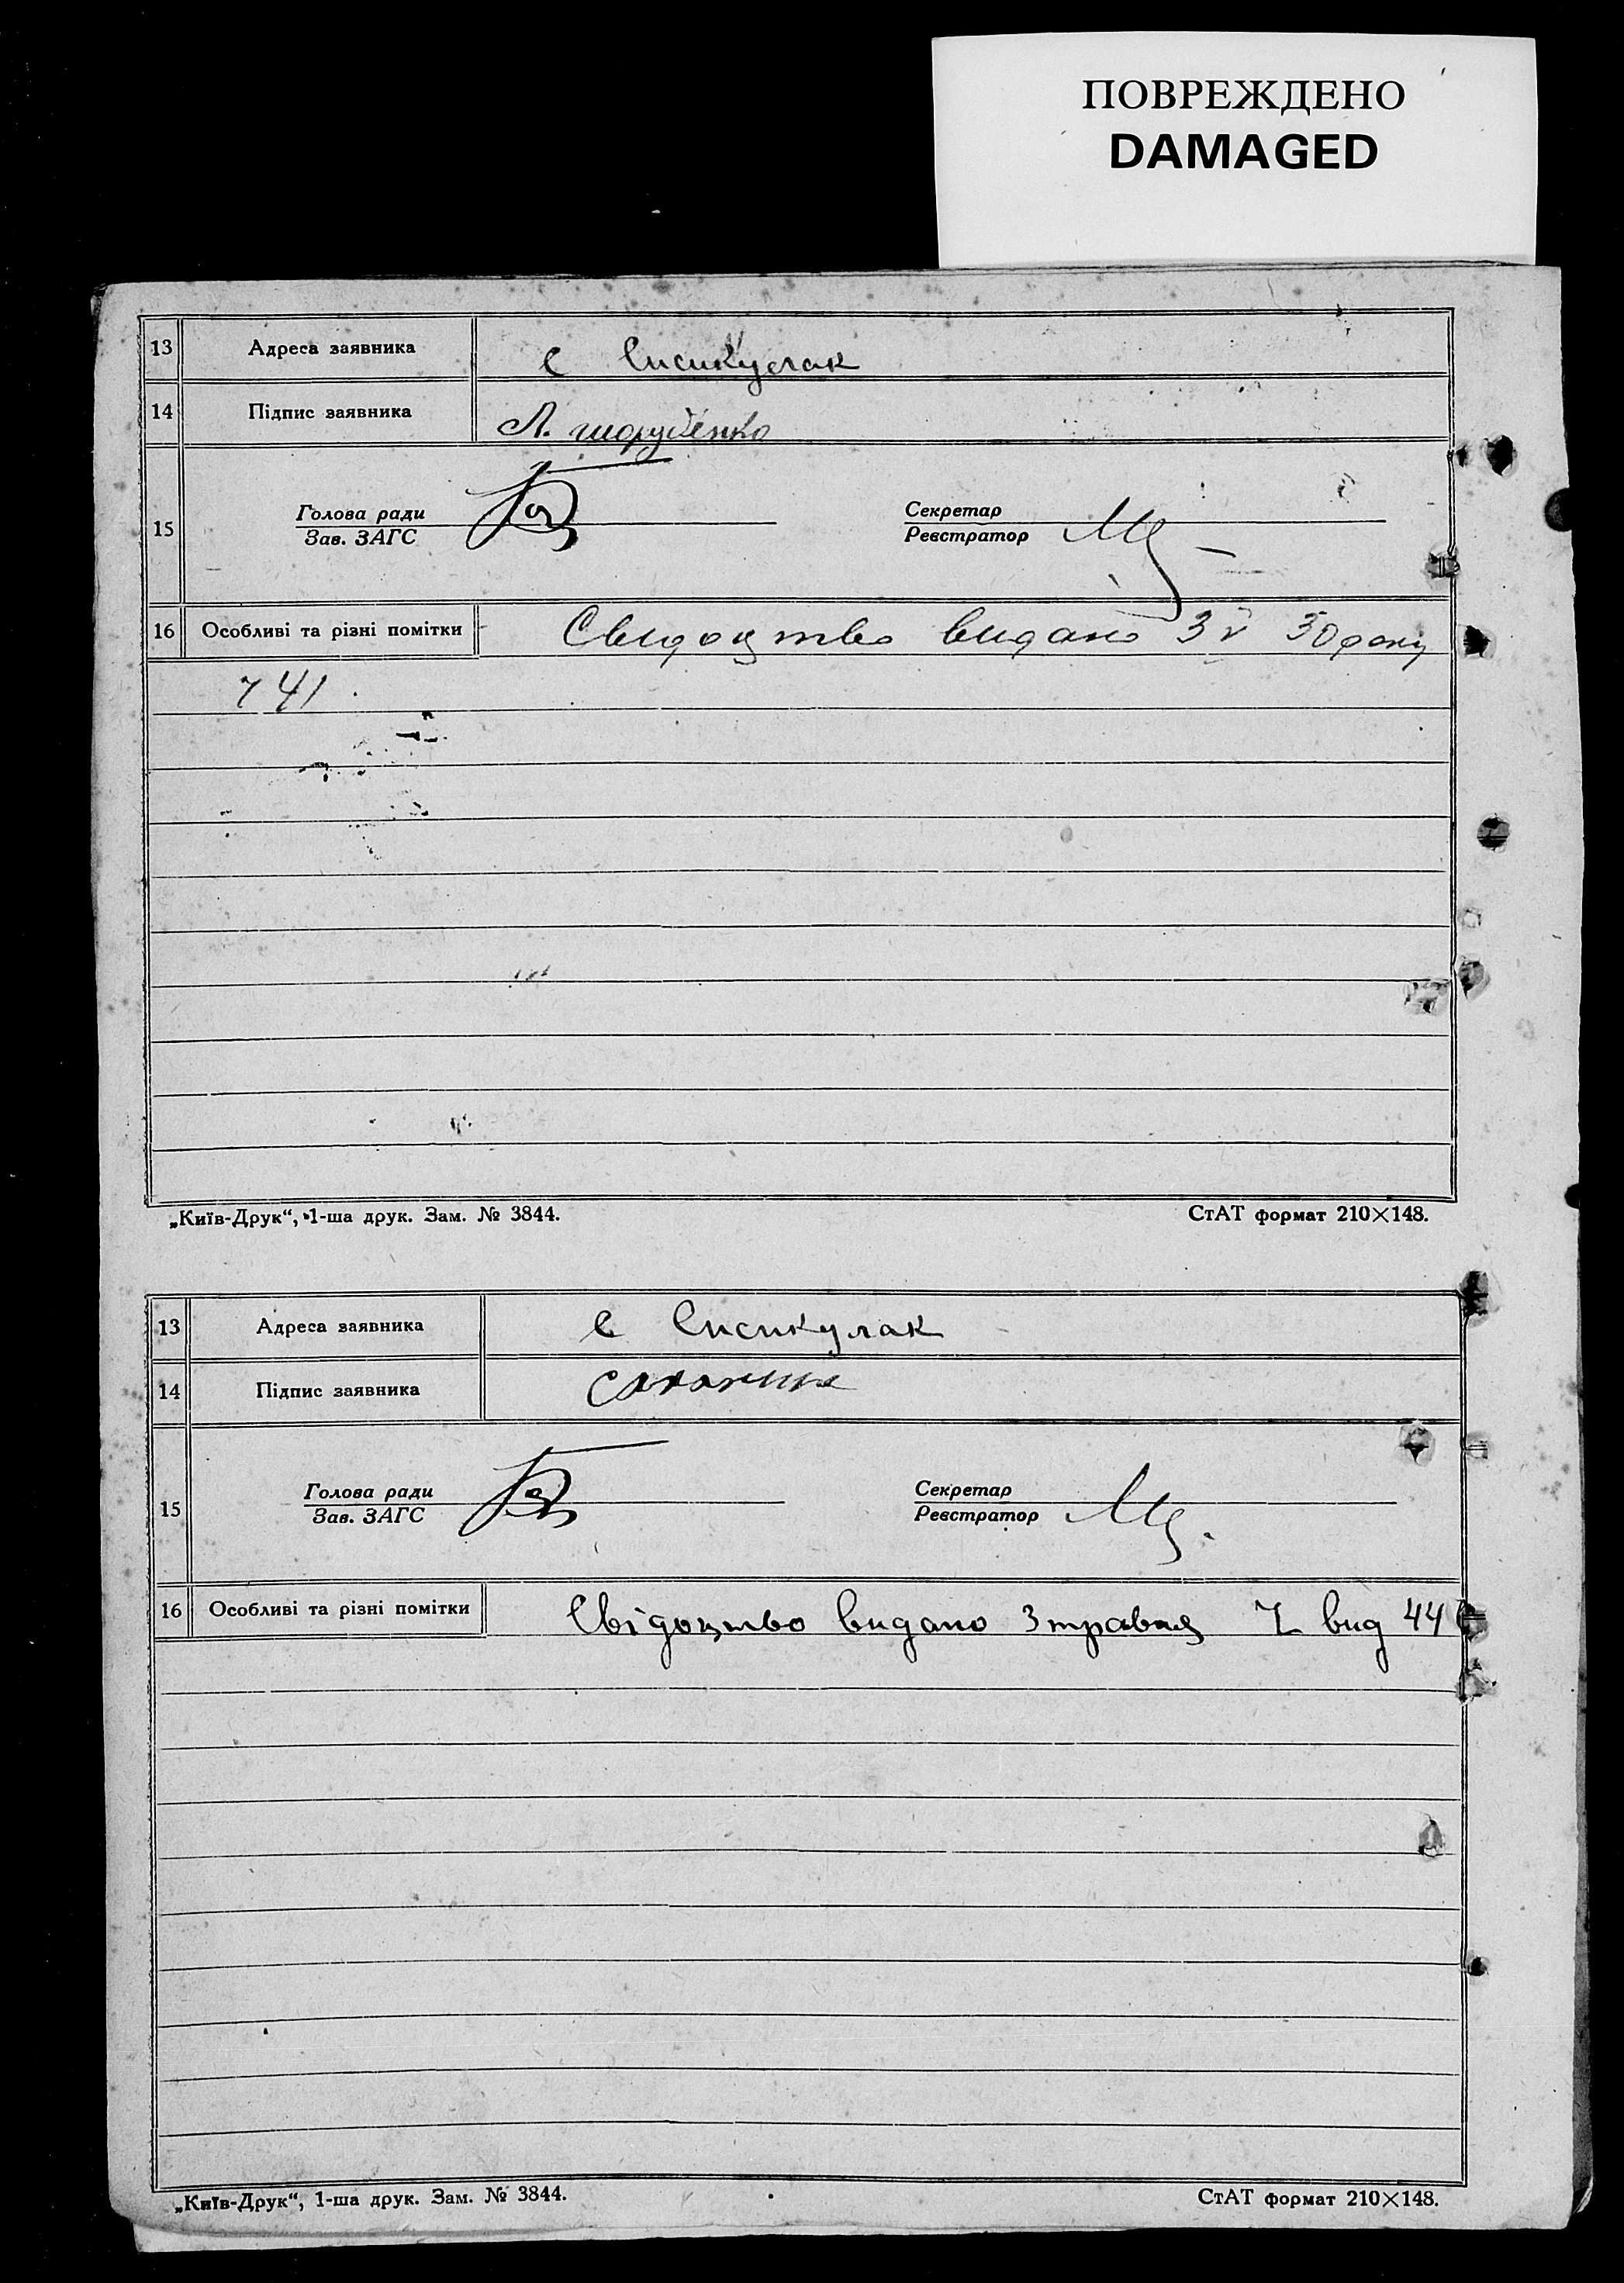 ПОВРЕЖДЕНО
DAMAGED
13 Адреса заявника с Сисикулак
14 Підпис заявника Л.
15 Голова ради Секретар
Зав. ЗАГС Реєстратор
16 Особливі та різні помітки Свидоцтво видано 3 V 30 року
ч 41
„Київ-Друк“, 1-ша друк. Зам. № 3844. СтАТ формат 210×148.
13 Адреса заявника с Сисикулак
14 Підпис заявника
15 Голова ради Секретар
Зав. ЗАГС Реєстратор
16 Особливі та різні помітки Свідоцтво видано 3 травня Ч вид 44
„Київ-Друк“, 1-ша друк. Зам. № 3844. СтАТ формат 210×148.